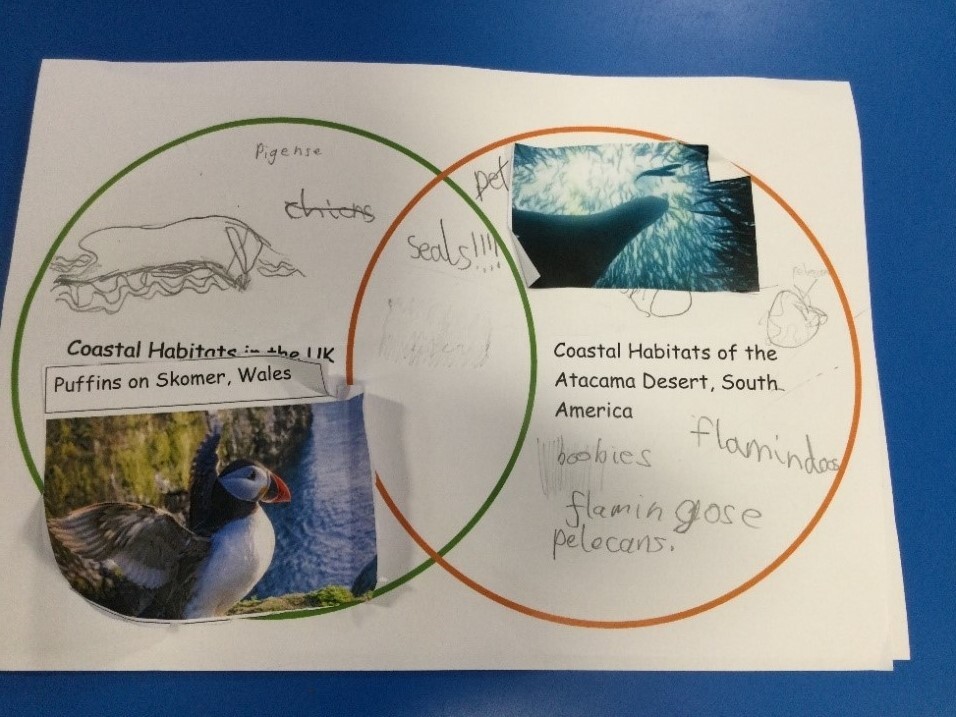 Pigense
chicns
pet
seals!!!!
Coastal Habitats in the UK
Puffins on Skomer, Wales
Coastal Habitats of the
Atacama Desert, South
America
boobies
flamindoos
flamingose
pelecans.